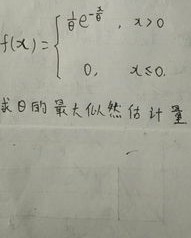 f(x) = { 1/θ e^{-x/θ}, x>0
0, x≤0.
求θ的最大似然估计量